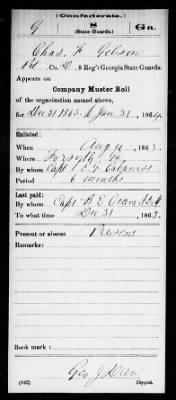 (Confederate.)
G 8 Ga.
(State Guards.)
Chas. F. Gibson
Pvt, Co. D, 8 Reg't Georgia State Guards.
Appears on
Company Muster Roll
of the organization named above,
for Dec 31 1863 to Jan 31, 1864
Enlisted:
When Aug 4, 1863.
Where Forsyth, Ga.
By whom Capt E. G. Cabaniss
Period 6 months
Last paid:
By whom Capt B. E.
To what time Dec 31, 1863.
Present or absent Present
Remarks:
Book mark:
(642) Geo. J. Drew
Copyist.